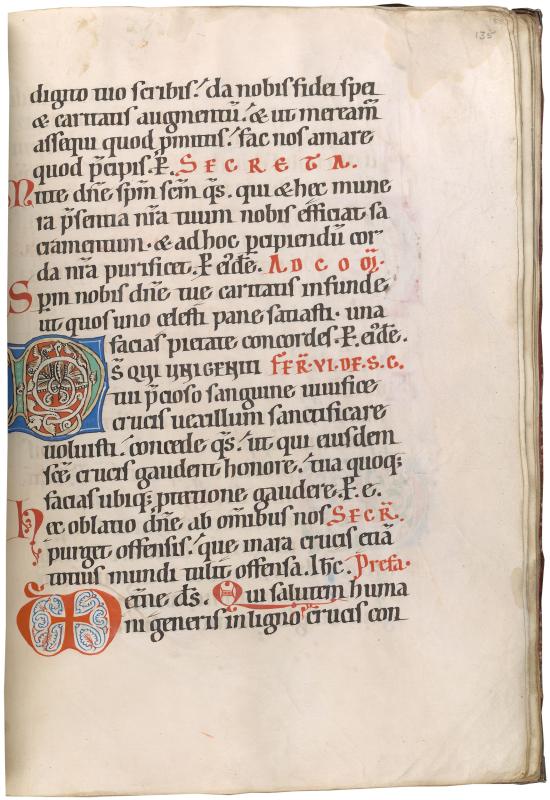 135
digito tuo scribis. da nobis fidei spei
& caritatis augmentū. & ut meream̄
assequi quod p̄mittis. fac nos amare
quod p̄cipis. P̄. SECRETA.
Mitte dn̄e sp̄m scm̄ q̄s. qui & hec mune
ra p̄sentia nr̄a tuum nobis efficiat sa
cramentum. & ad hoc p̄cipiendū cor
da nr̄a purificet. P̄ eiꝰdē. AD COM̄.
Sp̄m nobis dn̄e tue caritatis infunde
ut quos uno celesti pane satiasti. una
facias pietate concordes. P̄. eiꝰdē.
DS̄ QUI UNIGENITI FER̄. VI. DE. S. C.
tui p̄cioso sanguine uiuifice
crucis uexillum sanctificare
uoluisti. concede q̄s. ut qui eiusdem
sc̄e crucis gaudent honore. tua quoq;
facias ubiq; ptectione gaudere. P̄. e.
Hec oblatio dn̄e ab omībus nos SECR̄.
purget offensis. que in ara crucis etiā
totius mundi tulit offensa. Ihc̄. Prefa.
VD eterne ds̄. Qui salutem huma
ni generis in ligno crucis con